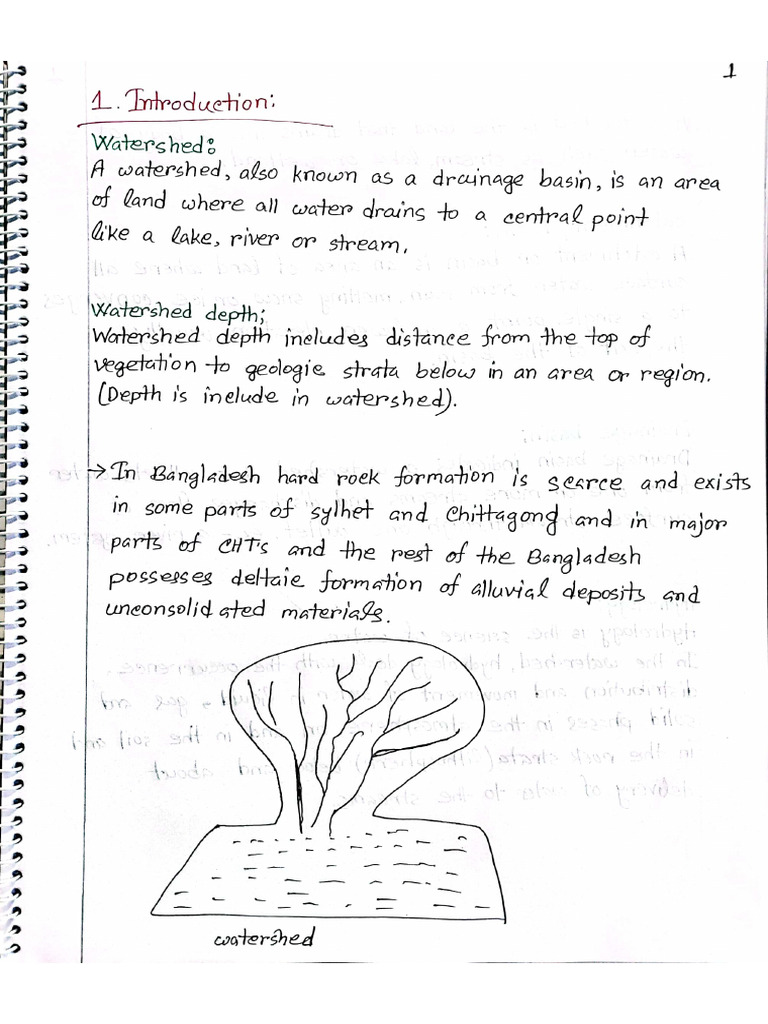 1
1. Introduction:
Watershed:
A watershed, also known as a drainage basin, is an area
of land where all water drains to a central point
like a lake, river or stream.
Watershed depth;
Watershed depth includes distance from the top of
vegetation to geologie strata below in an area or region.
(Depth is inelude in watershed).
→ In Bangladesh hard rock formation is scarce and exists
in some parts of sylhet and Chittagong and in major
parts of CHT's and the rest of the Bangladesh
possesses deltaie formation of alluvial deposits and
unconsolidated materials.
watershed